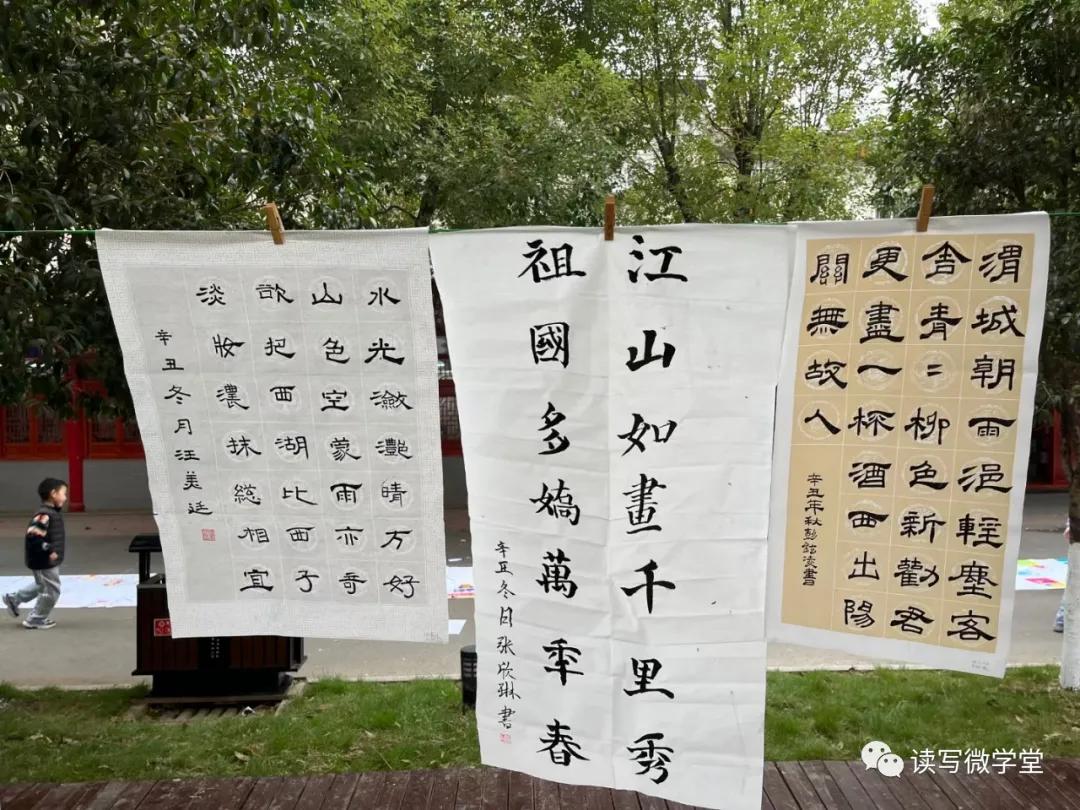 水光瀲灩晴方好
山色空蒙雨亦奇
欲把西湖比西子
淡妝濃抹総相宜
辛丑冬月汪美廷
江山如畫千里秀
祖國多嬌萬年春
辛丑冬月张欣琳書
渭城朝雨浥輕塵客
舍青〻柳色新勸君
更盡一杯酒西出陽
關無故人
辛丑年秋彭凌書
读写微学堂